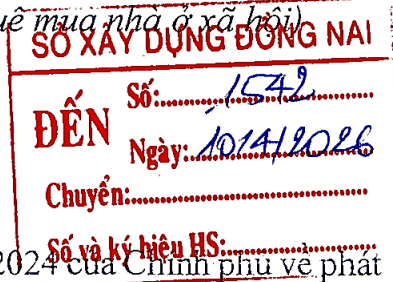 uê mua nhà ở xã hội)
SỞ XÂY DỰNG ĐỒNG NAI
ĐẾN
Số: 1542
Ngày: 10/4/2026
Chuyển:
Số và ký hiệu HS:
2024 của Chính phủ về phát